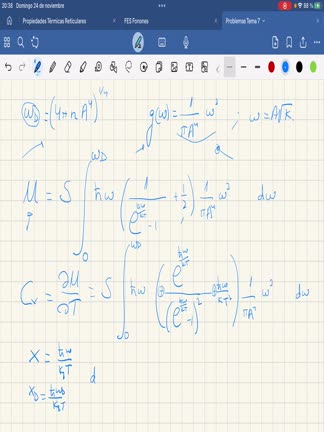 20:38 Domingo 24 de noviembre
88 %
Propiedades Térmicas Reticulares
FES Fonones
Problemas Tema 7
ω_D = (4πn A⁴)^{1/4} g(ω) = 1/(πA⁴) ω³ ; ω = A√K
U = S ∫₀^{ω_D} ħω (1/(e^{ħω/KT} - 1) + 1/2) 1/(πA⁴) ω³ dω
C_v = ∂U/∂T = S ∫₀^{ω_D} ħω (⊕ e^{ħω/KT}/(e^{ħω/KT} - 1)² ⊕ ħω/KT²) 1/(πA⁴) ω³ dω
X = ħω/K_BT
X_D = ħω_D/K_BT d